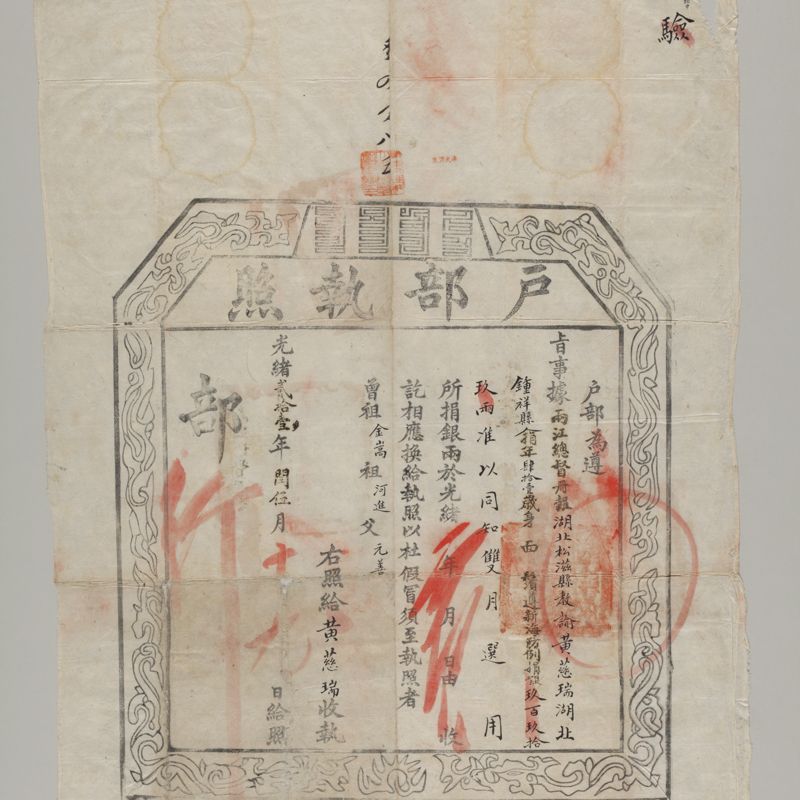 驗
戶部執照
戶部為遵
旨事據兩江總督冊報湖北松滋縣教諭黃慈瑞湖北
鍾祥縣人捐年肆拾壹歲身 面 鬚遵新海防例捐銀玖百玖拾
玖兩准以同知雙月選用
所捐銀兩於光緒 年 月 日由 收
訖相應換給執照以杜假冒須至執照者
曾祖金嵩 祖河進 父元善
右照給黃慈瑞收執
光緒貳拾壹年閏伍月十 日給照
部
行